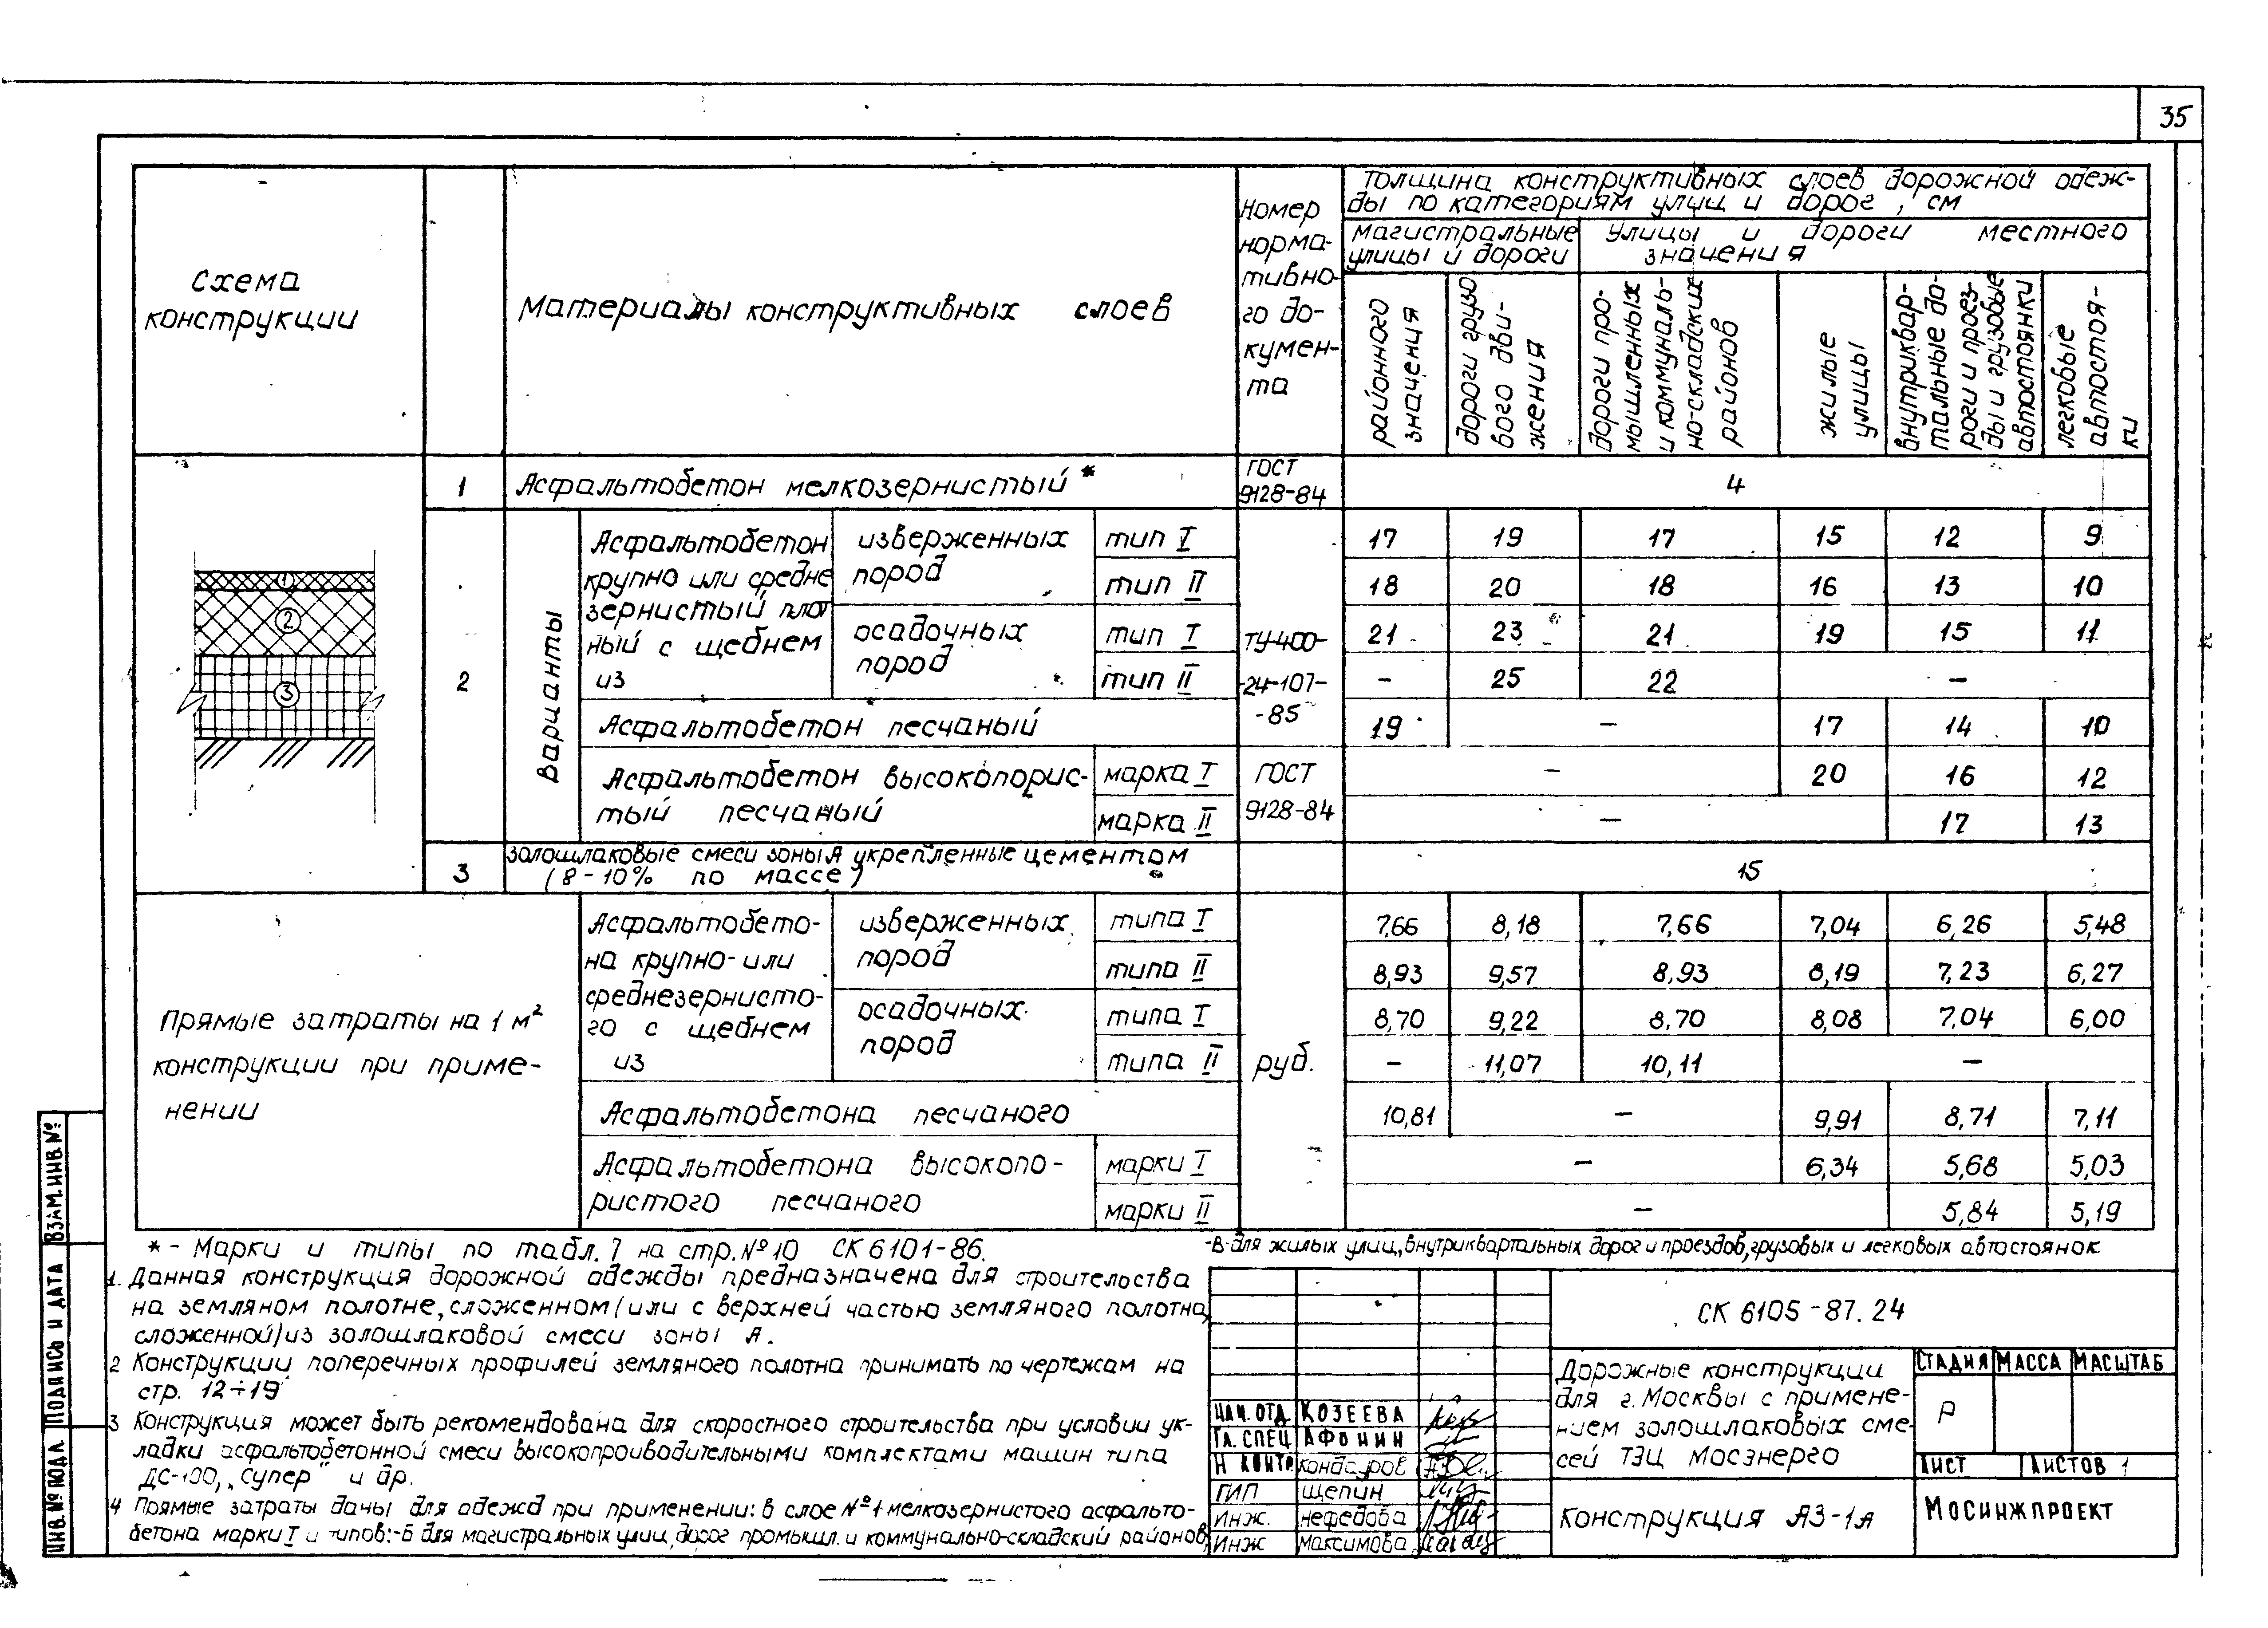 35
Схема
конструкции
Материалы конструктивных слоев
Номер
норма-
тивно-
го до-
кумен-
та
Толщина конструктивных слоев дорожной одеж-
ды по категориям улиц и дорог, см
магистральные
улицы и дороги
Улицы и дороги местного
значения
районного
значения
дороги грузо
вого дви-
жения
дороги про-
мышленных
и коммуналь-
но-складских
районов
жилые
улицы
внутриквар-
тальные до-
роги и проез-
ды и грузовые
автостоянки
легковые
автостоян-
ки
1 Асфальтобетон мелкозернистый * ГОСТ 9128-84 4
2
Варианты
Асфальтобетон
крупно или средне
зернистый плот
ный с щебнем
из
изверженных
пород
тип I 17 19 17 15 12 9
тип II 18 20 18 16 13 10
осадочных
пород
тип I 21 23 21 19 15 11
тип II - 25 22 -
ТУ-400-
-24-107-
-85
Асфальтобетон песчаный 19 - 17 14 10
Асфальтобетон высокопорис-
тый песчаный
марка I - 20 16 12
марка II - 17 13
ГОСТ
9128-84
3 золошлаковые смеси зоны А укрепленные цементом
(8-10% по массе) 15
1
2
3
Прямые затраты на 1 м²
конструкции при приме-
нении
Асфальтобето-
на крупно- или
среднезернисто-
го с щебнем
из
изверженных
пород
типа I 7,66 8,18 7,66 7,04 6,26 5,48
типа II 8,93 9,57 8,93 8,19 7,23 6,27
осадочных
пород
типа I 8,70 9,22 8,70 8,08 7,04 6,00
типа II - 11,07 10,11 -
руб.
Асфальтобетона песчаного 10,81 - 9,91 8,71 7,11
Асфальтобетона высокопо-
ристого песчаного
марки I - 6,34 5,68 5,03
марки II - 5,84 5,19
* - Марки и типы по табл. 7 на стр. №10 СК 6101-86.
1. Данная конструкция дорожной одежды предназначена для строительства
на земляном полотне, сложенном (или с верхней частью земляного полотна,
сложенной) из золошлаковой смеси зоны А.
2 Конструкции поперечных профилей земляного полотна принимать по чертежам на
стр. 12÷19
3 Конструкция может быть рекомендована для скоростного строительства при условии ук-
ладки асфальтобетонной смеси высокопроизводительными комплектами машин типа
ДС-100, „Супер" и др.
4 Прямые затраты даны для одежд при применении: в слое №1 мелкозернистого асфальто-
бетона марки I и типов: -Б для магистральных улиц, дорог промышл. и коммунально-складский районов,
-В-для жилых улиц, внутриквартальных дорог и проездов, грузовых и легковых автостоянок
ИНВ. № ПОДЛ. ПОДПИСЬ И ДАТА ВЗАМ. ИНВ. №
СК 6105-87.24
НАЧ. ОТД. КОЗЕЕВА
ГЛ. СПЕЦ АФОНИН
Н КОНТР. кондауров
ГИП щепин
Инж. нефедова
Инж максимова
Дорожные конструкции
для г. Москвы с примене-
нием золошлаковых сме-
сей ТЭЦ Мосэнерго
СТАДИЯ МАССА МАСШТАБ
Р
ЛИСТ ЛИСТОВ 1
Конструкция АЗ-1а
МОСИНЖПРОЕКТ